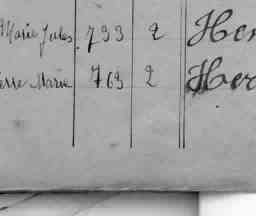 Marie Jules 793 2 Hen
erre Marie 769 2 Her